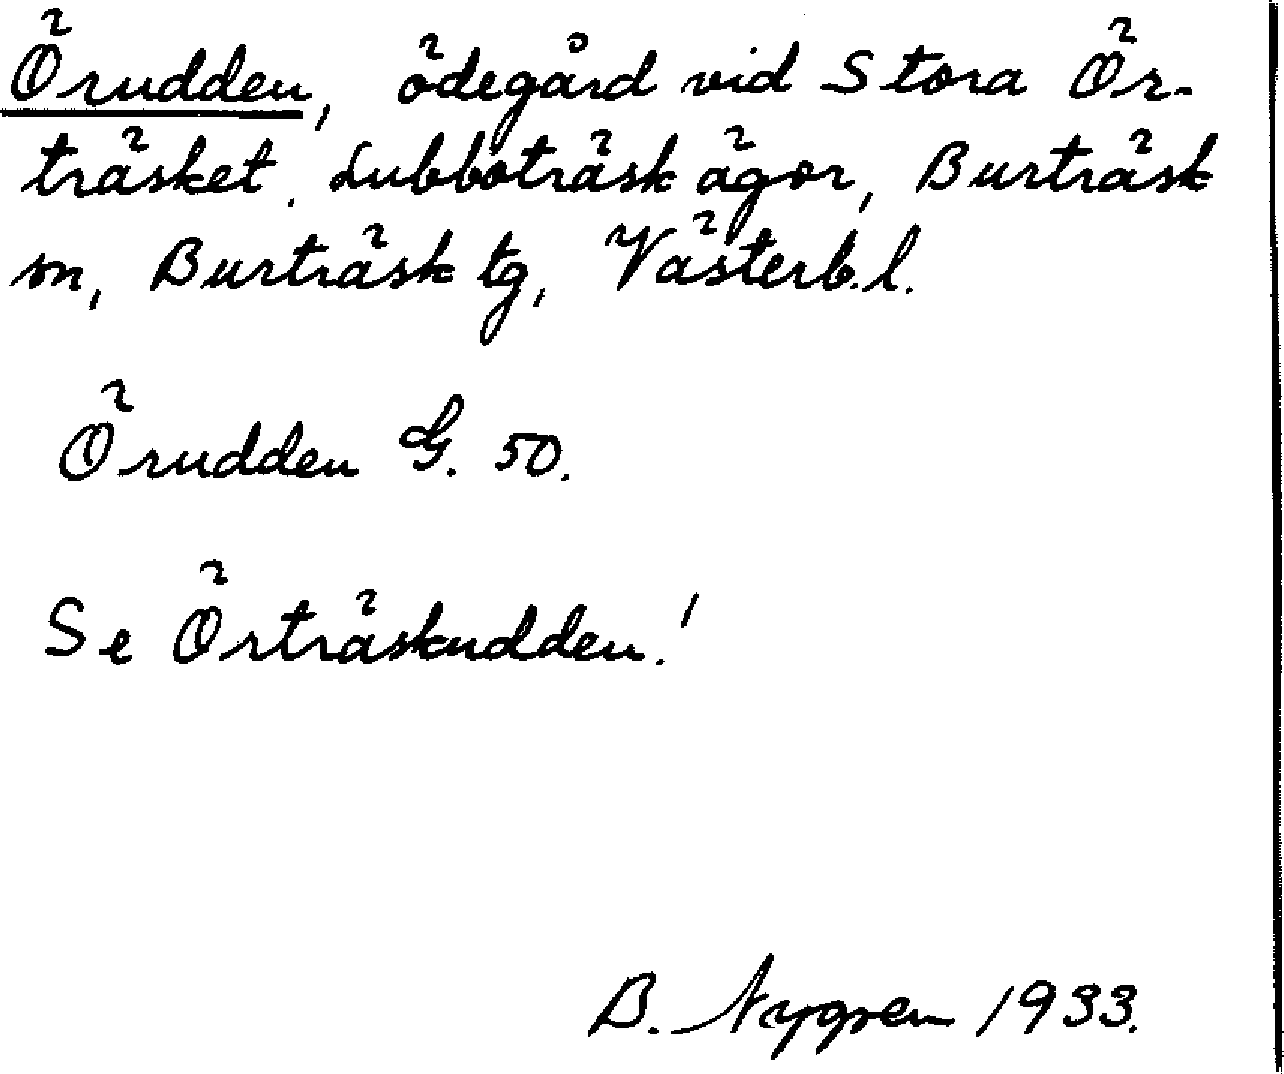 Örudden, ödegård vid Stora Ör-
träsket, Lubboträsk ägor, Burträsk
sn, Burträsk tg, Västerb.l.
Örudden G. 50.
Se Örträskudden!
B. Nygren 1933.